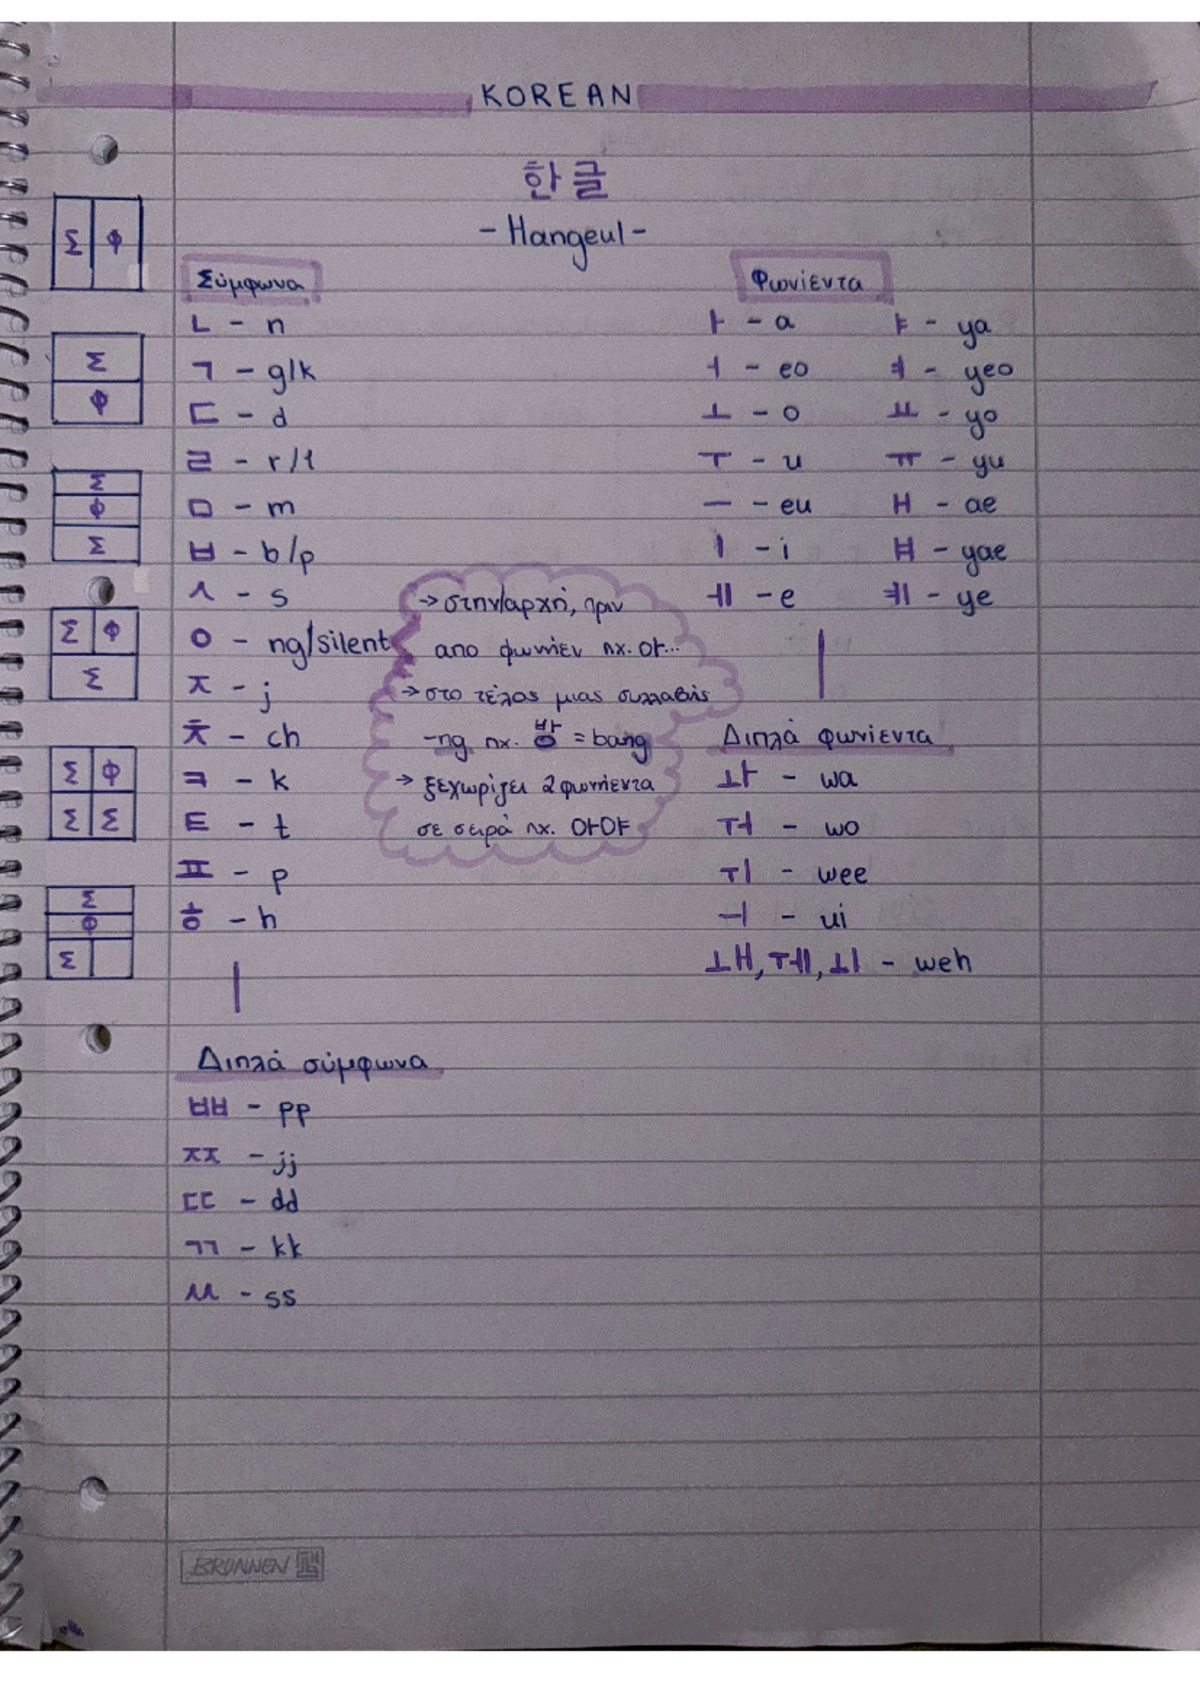 KOREAN
한글
- Hangeul -
Σύμφωνα
ㄴ - n
ㄱ - g/k
ㄷ - d
ㄹ - r/l
ㅁ - m
ㅂ - b/p
ㅅ - s
ㅇ - ng/silent
ㅈ - j
ㅊ - ch
ㅋ - k
ㅌ - t
ㅍ - p
ㅎ - h
→ στην αρχή, πριν
απο φωνήεν πχ. 아...
→ στο τέλος μιας συλλαβής
-ng πχ. 방 = bang
→ ξεχωρίζει 2 φωνήεντα
σε σειρά πχ. 아야
Διπλά σύμφωνα
ㅃ - pp
ㅉ - jj
ㄸ - dd
ㄲ - kk
ㅆ - ss
Φωνήεντα
ㅏ - a ㅑ - ya
ㅓ - eo ㅕ - yeo
ㅗ - o ㅛ - yo
ㅜ - u ㅠ - yu
ㅡ - eu ㅐ - ae
ㅣ - i ㅒ - yae
ㅔ - e ㅖ - ye
Διπλά φωνήεντα
ㅘ - wa
ㅝ - wo
ㅟ - wee
ㅢ - ui
ㅙ, ㅞ, ㅚ - weh
Σ Φ
Σ
Φ
Σ
Φ
Σ
Σ Φ
Σ
Σ Φ
Σ Σ
Σ
Φ
Σ
BRUNNEN